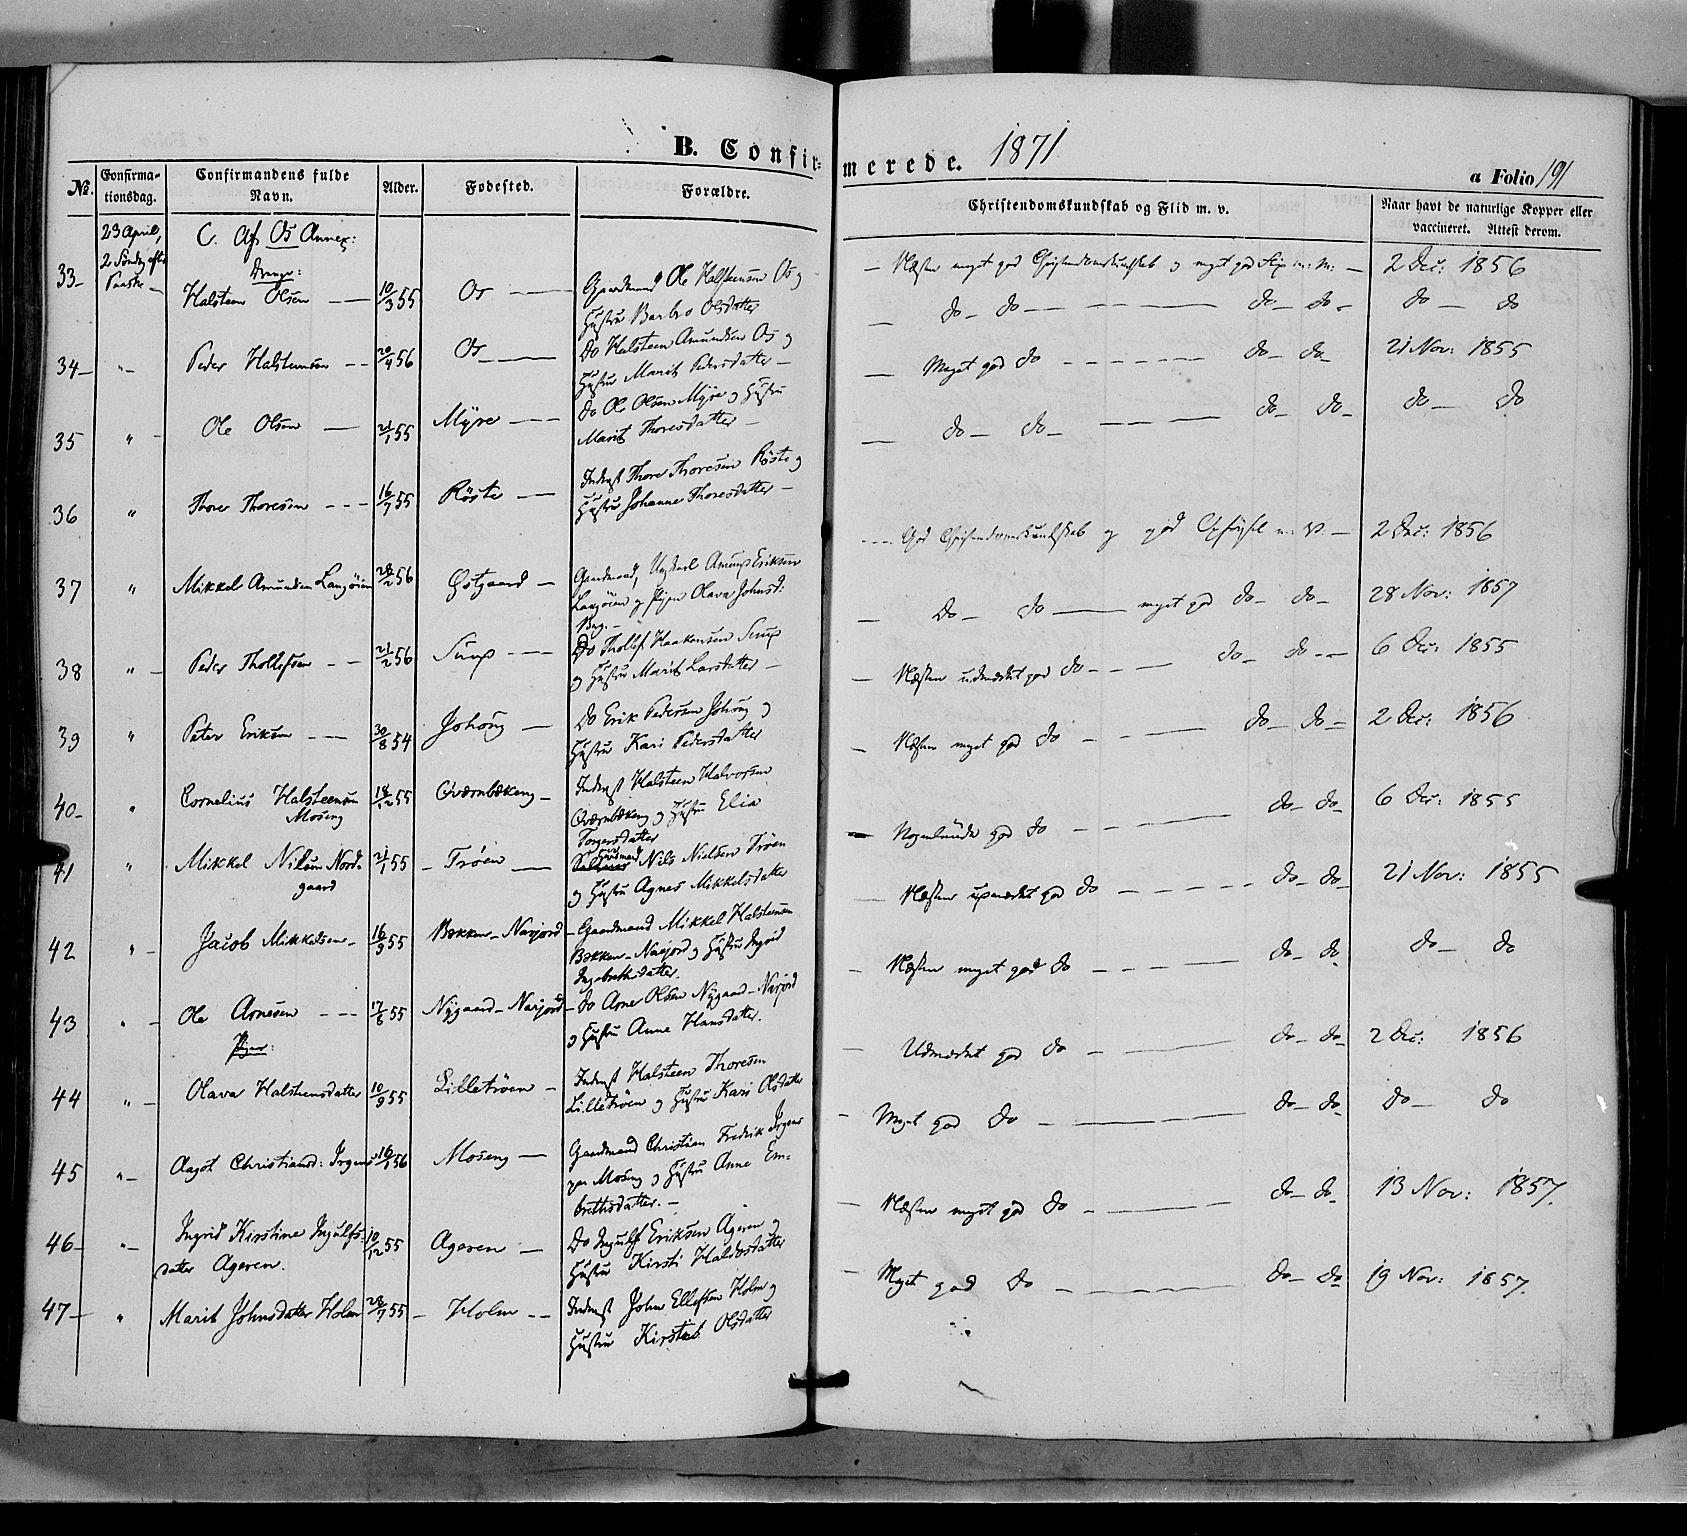 B. Confirmerede. 1871
a Folio 191
No. Confirmationsdag. Confirmandens fulde Navn. Alder. Fødested. Forældre. Christendomskundskab og Flid m. v. Naar havt de naturlige Kopper eller vaccineret. Attest derom.
23 April, 2 Søndag efter Paaske
C. Af Os Annex:
Drenge:
33 Halsteen Olsen 10/3 55 Os Gaardmand Ole Halsteensen Os og
Hustru Barbro Olsdatter
Næsten meget god Christendomskundskab og meget god Flid m: m: 2 Dec: 1856
34 " Peder Halsteensen 20/4 56 Os Do Halsteen Amundsen Os og
Hustru Marit Pedersdatter
do do do do do do
35 " Ole Olsen 21/1 55 Myre Do Ole Olsen Myre og Hustru
Marit Thoresdatter
Meget god do do do 21 Nov: 1855
36 " Thore Thoresen 16/7 55 Røste Inderst Thore Thoresen Røste og
Hustru Johanne Thoresdatter
do do do do do do
37 " Mikkel Amundsen Langøien 28/2 56 Østgaard Gaardmand, Ungkarl Amund Eriksen
Langøien og Pigen Olava Johnsd:
God Christendomskundskab og god m. v. 2 Dec: 1856
38 " Peder Thollefsen 21/2 56 Do Thollef Haakensen
og Hustru Marit Larsdatter
Do do meget god do do 28 Nov: 1857
39 " Peter Eriksen 30/8 54 Johøug Do Erik Pedersen Johøug og
Hustru Kari Pedersdatter
Næsten udmærket god do do do 6 Dec: 1855
40 " Cornelius Halsteensen
Moseng 18/12 55 Qværnbækeng Inderst Halsteen Halvorsen
Qværnbækeng og Hustru Elia
Torgersdatter
Næsten meget god do do do 2 Dec: 1856
41 " Mikkel Nilsen Nord-
gaard 21/1 55 Trøen Nils Nielsen Trøen
og Hustru Agnes Mikkelsdatter
Nogenlunde god do do do 6 Dec: 1855
42 " Jacob Mikkelsen 16/9 55 Bækken-Narjord Gaardmand Mikkel Halsteensen
Bækken-Narjord og Hustru Ingrid
Ingebrethsdatter.
Næsten udmærket god do do do 21 Nov: 1855
43 " Ole Arnesen 17/6 55 Nygaard-Narjord Do Arne Olsen Nygaard-Narjord
og Hustru Anne Hansdatter.
Næsten meget god do do do do do
Piger:
44 " Olava Halsteensdatter 10/9 55 Lilletrøen Inderst Halsteen Thoresen
Lilletrøen og Hustru Kari Olsdatter
Udmærket god do do do 2 Dec: 1856
45 " Aagot Christiansd: Irgens 16/1 56 Moseng Gaardmand Christian Fredrik Irgens
paa Moseng og Hustru Anne Em-
brethsdatter.
Meget god do do do do do
46 " Ingrid Kirstine Ingulfs-
datter Ageren. 10/12 55 Ageren Do Ingulf Eriksen Ageren og
Hustru Kirsti Haldosdatter
Næsten meget god do do do 13 Nov: 1857.
47 " Marit Johnsdatter Holm 28/7 55 Holm Inderst John Ellefsen Holm og
Hustru Kirsti Olsdatter
Meget god do do do 19 Nov: 1857.